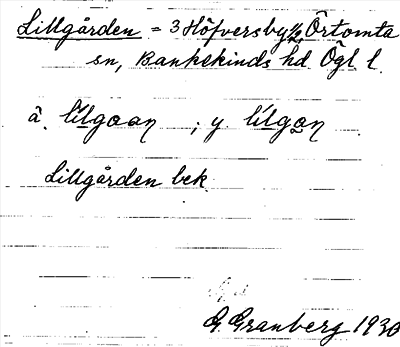 Lillgården = 3 Höfversby 1/2, Örtomta
sn, Bankekinds hd. Ögl. l.
ä. lílgoan ; y. lílgon
Lillgården bek.
G. Granberg 1930